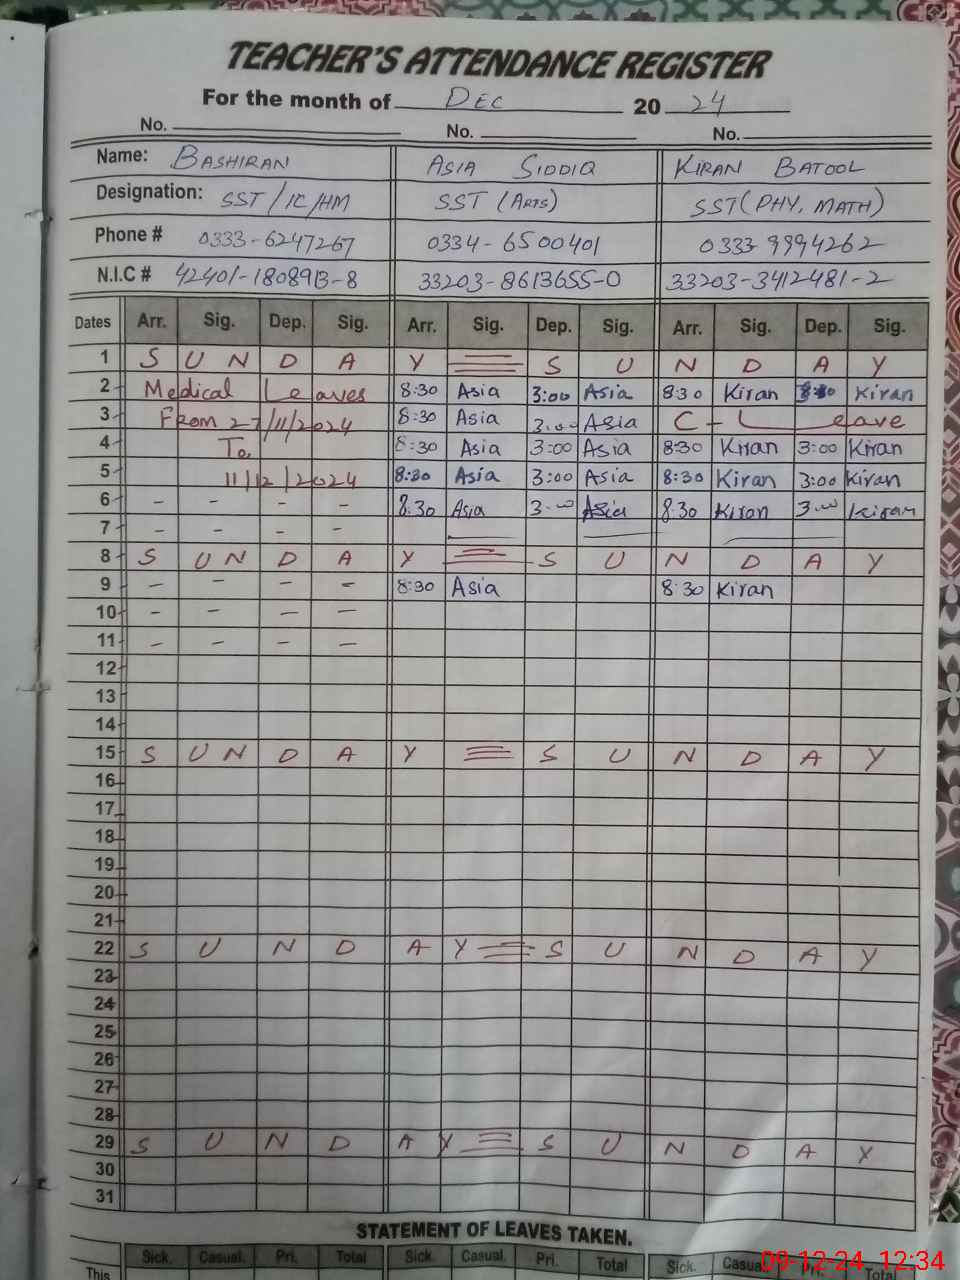 TEACHER'S ATTENDANCE REGISTER
For the month of DEC 20 24
No. No. No.
Name: BASHIRAN ASIA SIDDIQ KIRAN BATOOL
Designation: SST/IC/HM SST (ARTS) SST(PHY, MATH)
Phone # 0333-6247267 0334-6500401 0333 9994262
N.I.C # 42401-1808913-8 33203-8613655-0 33203-3412481-2
Dates Arr. Sig. Dep. Sig. Arr. Sig. Dep. Sig. Arr. Sig. Dep. Sig.
1 S U N D A Y S U N D A Y
2 Medical Leaves 8:30 Asia 3:00 Asia 8:30 Kiran Kiran
3 From 27/11/2024 8:30 Asia 3:00 Asia C - Leave
4 To 8:30 Asia 3:00 Asia 8:30 Kiran 3:00 Kiran
5 11/12/2024 8:30 Asia 3:00 Asia 8:30 Kiran 3:00 Kiran
6 - - - - 8.30 Asia 3-00 Asia 8.30 Kiran 3-00 Kiran
7 - - - -
8 S U N D A Y S U N D A Y
9 - - - - 8:30 Asia 8:30 Kiran
10 - - - -
11 - - - -
12
13
14
15 S U N D A Y S U N D A Y
16
17
18
19
20
21
22 S U N D A Y S U N D A Y
23
24
25
26
27
28
29 S U N D A Y S U N D A Y
30
31
STATEMENT OF LEAVES TAKEN.
Sick. Casual. Pri. Total Sick. Casual. Pri. Total Sick. Casual. Pri. Total
This
09-12-24 12:34